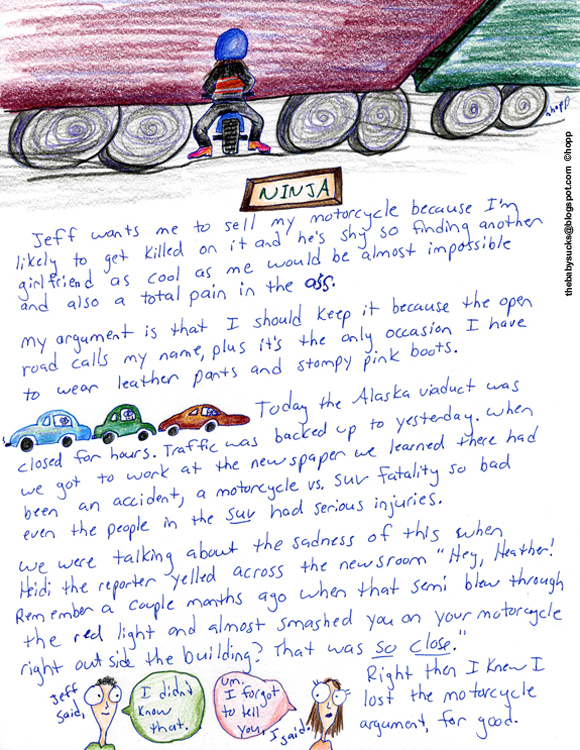 hopp
thebabysucks@blogspot.com ©hopp
NINJA
Jeff wants me to sell my motorcycle because I'm
likely to get killed on it and he's shy so finding another
girlfriend as cool as me would be almost impossible
and also a total pain in the ass.
My argument is that I should keep it because the open
road calls my name, plus it's the only occasion I have
to wear leather pants and stompy pink boots.
Today the Alaska viaduct was
closed for hours. Traffic was backed up to yesterday. When
we got to work at the newspaper we learned there had
been an accident, a motorcycle vs. suv fatality so bad
even the people in the suv had serious injuries.
We were talking about the sadness of this when
Heidi the reporter yelled across the newsroom "Hey, Heather!
Remember a couple months ago when that semi blew through
the red light and almost smashed you on your motorcycle
right outside the building? That was so close."
Jeff
said,
I didn't
know
that.
um,
I forgot
to tell
you,
I said.
Right then I knew I
lost the motorcycle
argument, for good.